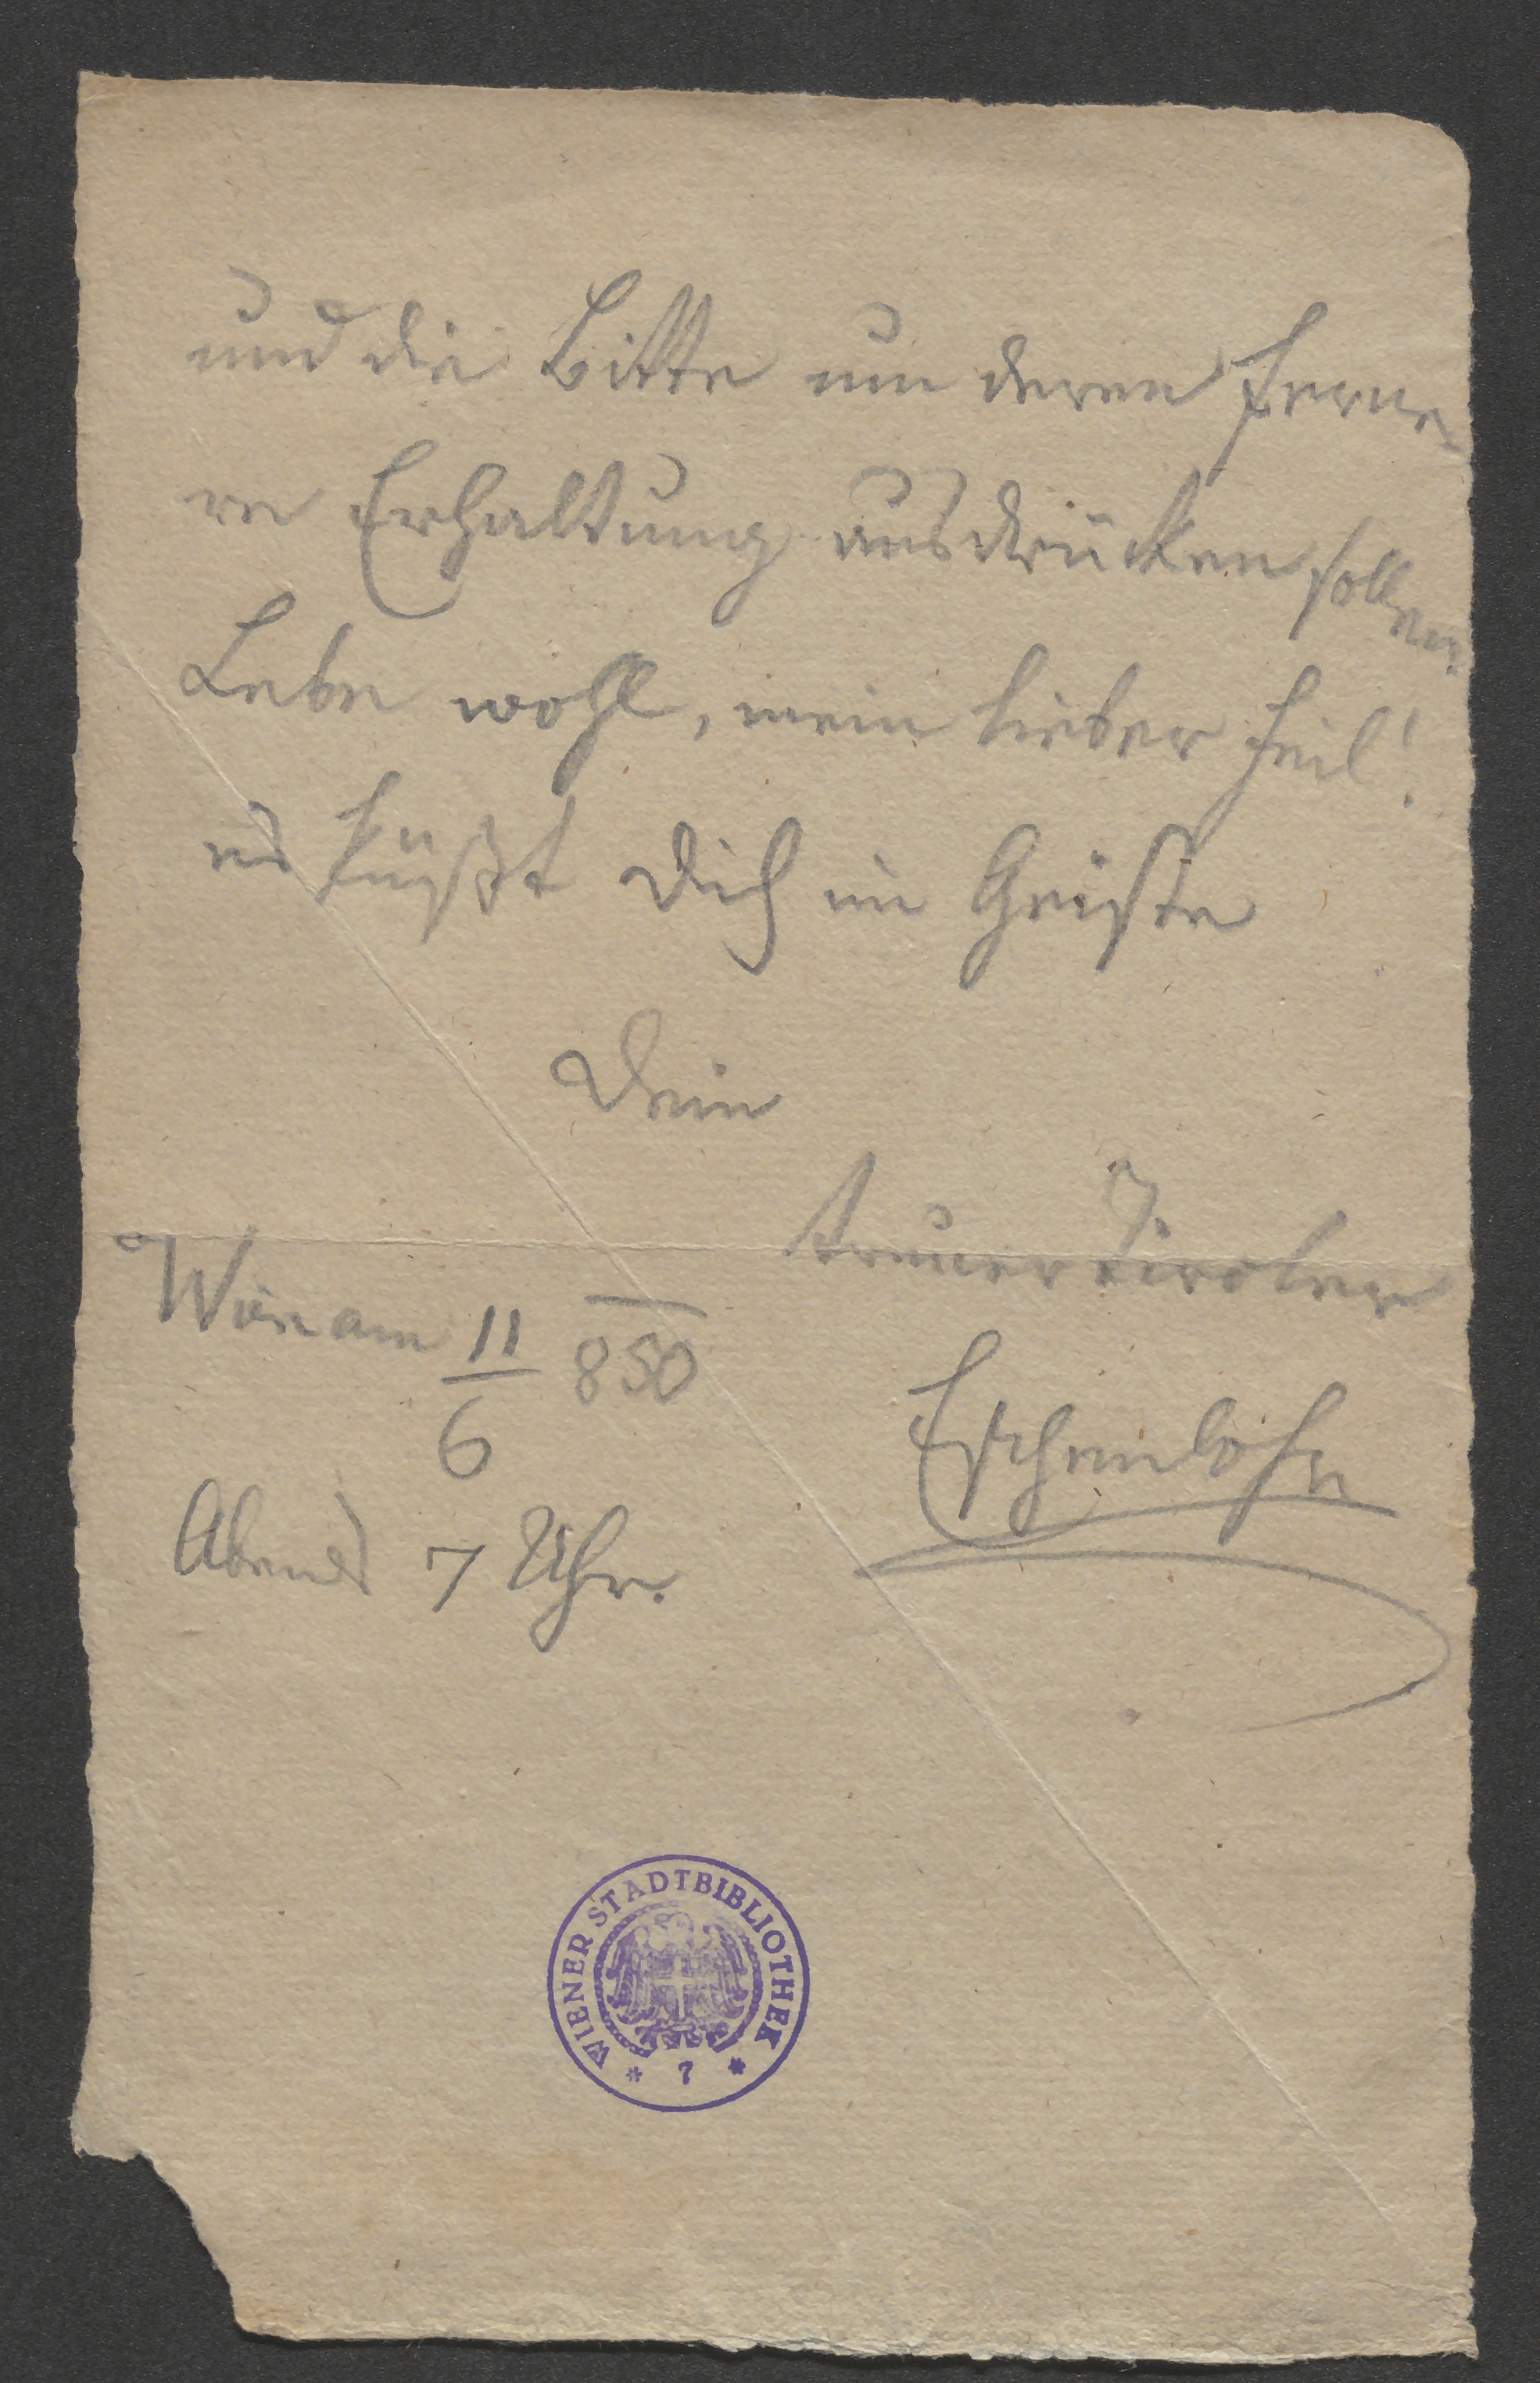 und die Bitte um deren ferne-
re Erhaltung ausdrücken sollen.
Lebe wohl, mein lieber Feil!
es küßt Dich im Geiste
Dein
treuer Tiroler
Wien am 11/6 850
Eschenlohe
Abend 7 Uhr.
WIENER STADTBIBLIOTHEK
* 7 *